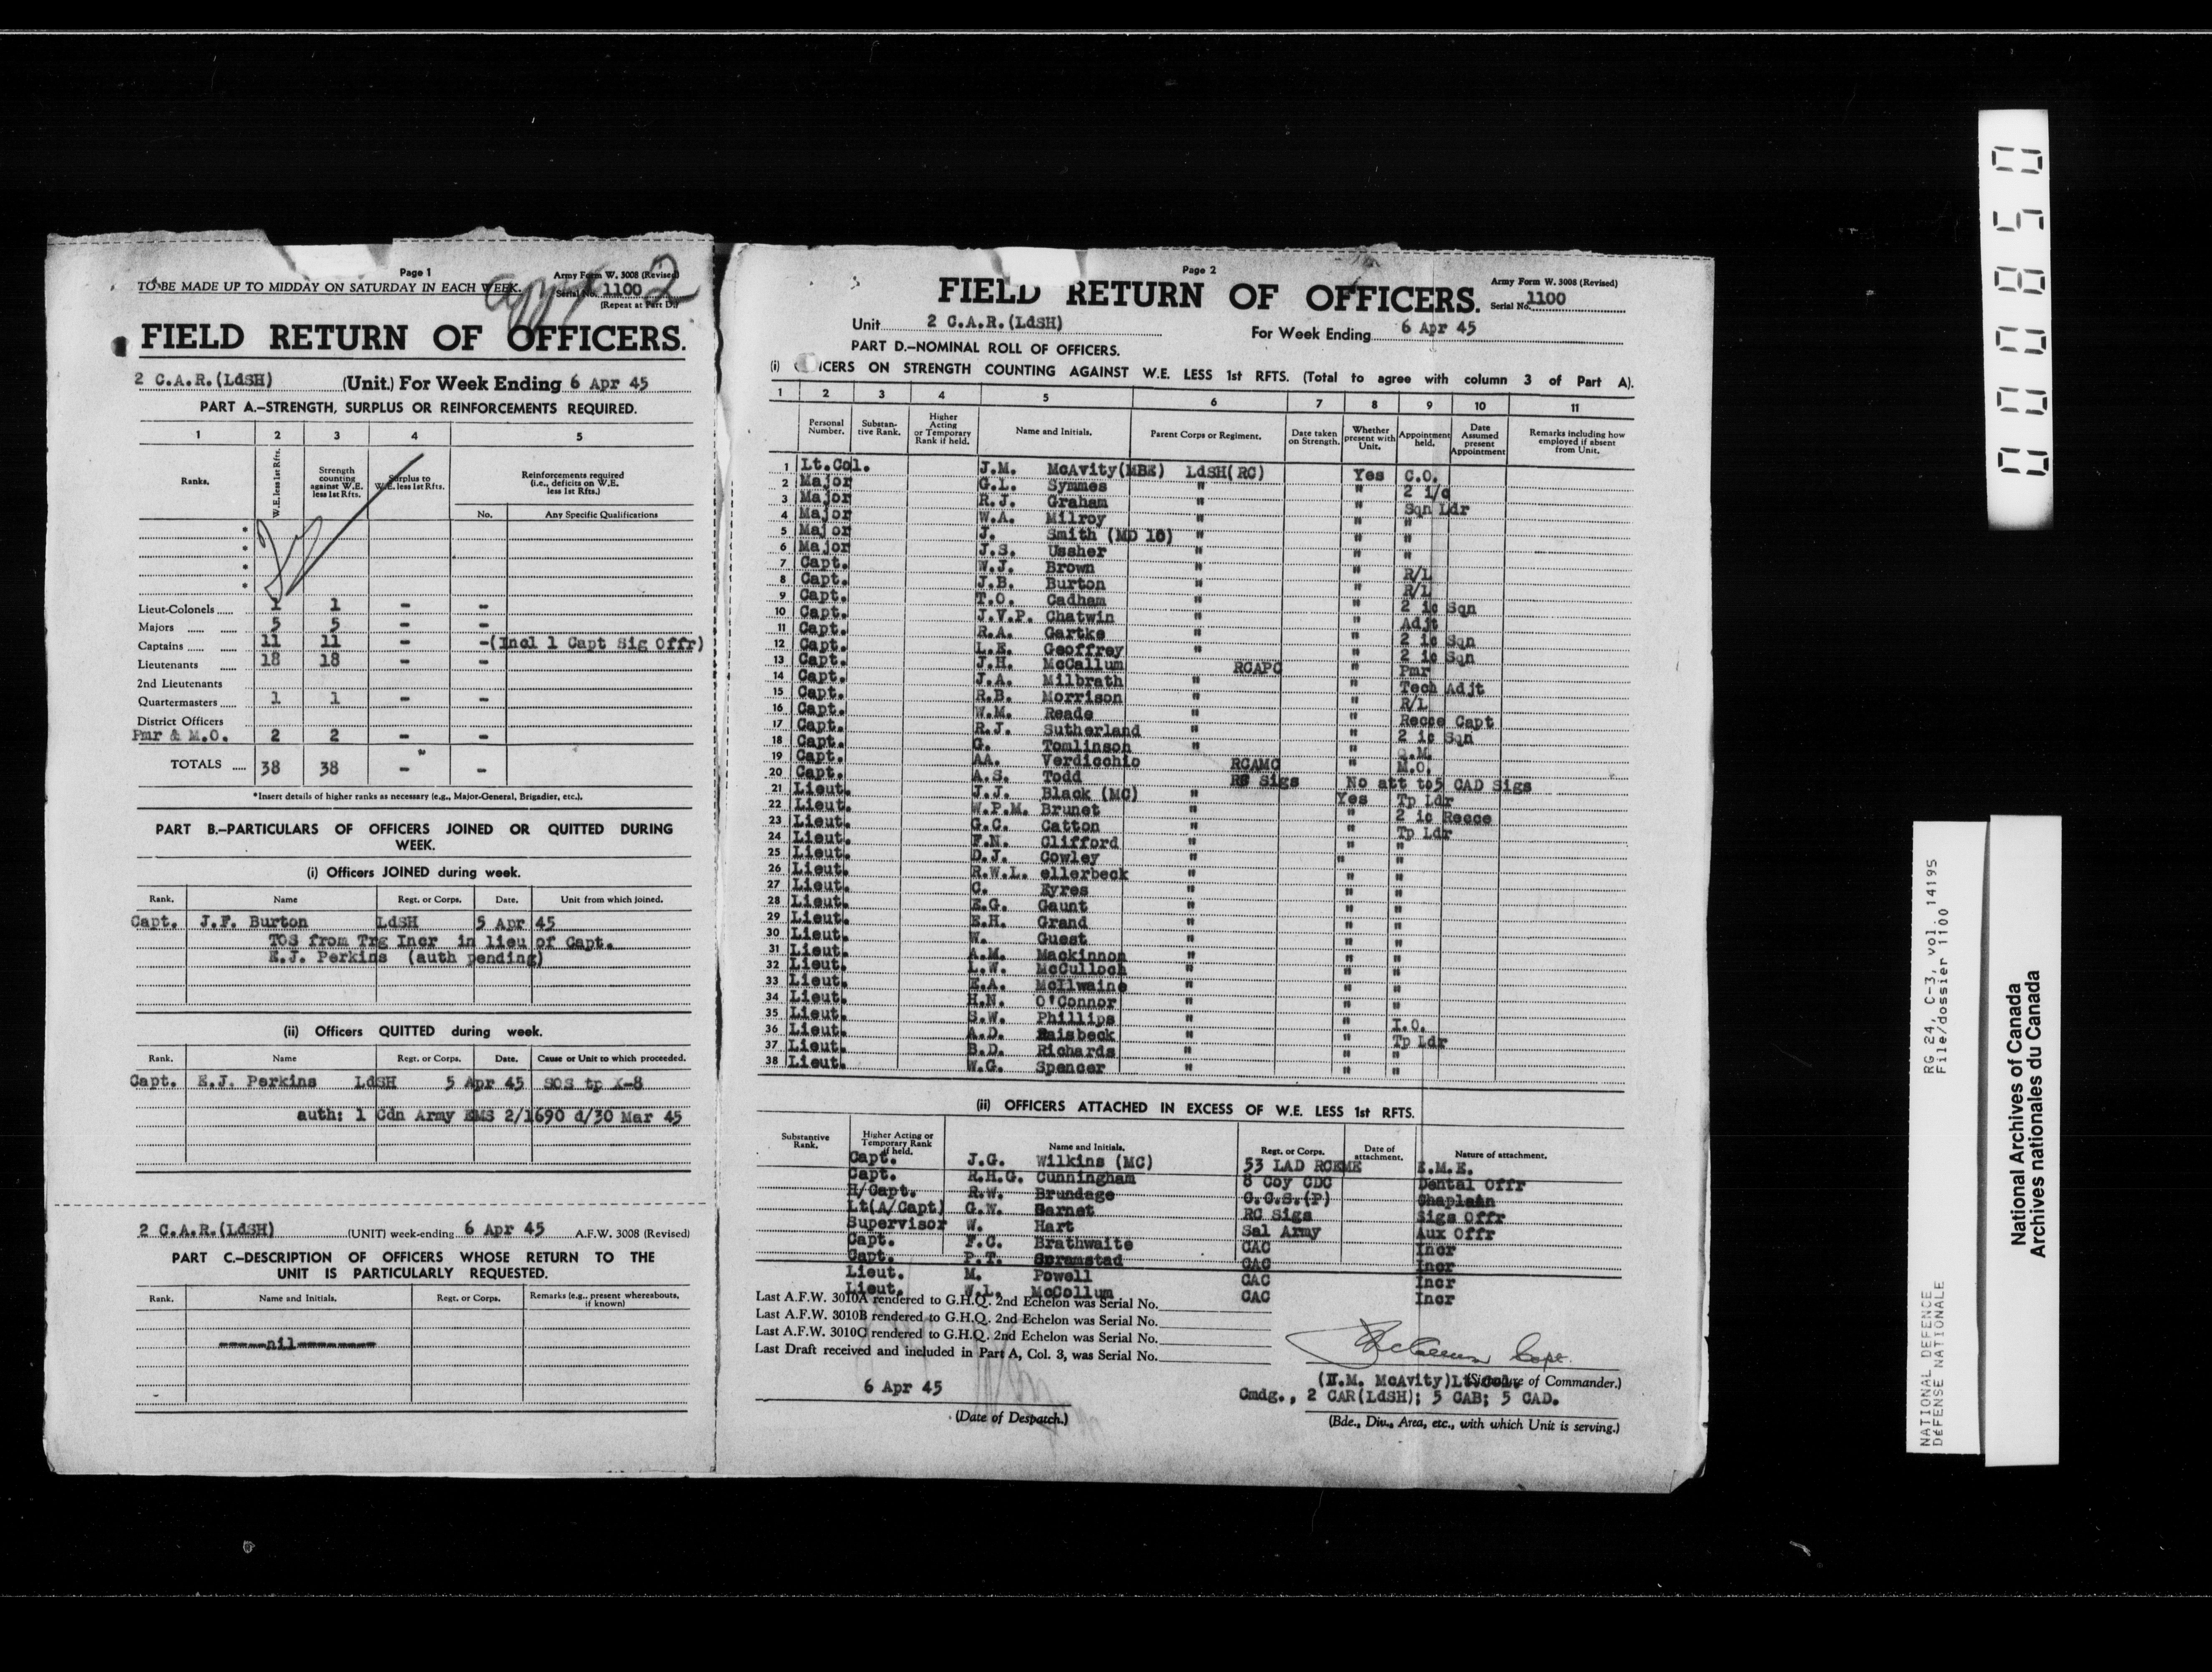 Page 1
TO BE MADE UP TO MIDDAY ON SATURDAY IN EACH WEEK.
Army Form W. 3008 (Revised)
Serial No. 1100
(Repeat at Part D.)
2
FIELD RETURN OF OFFICERS.
2 C.A.R.(LdSH) (Unit.) For Week Ending 6 Apr 45
PART A.-STRENGTH, SURPLUS OR REINFORCEMENTS REQUIRED.
1 2 3 4 5
Ranks. W.E. less 1st Rfts. Strength counting against W.E. less 1st Rfts. Surplus to W.E. less 1st Rfts. Reinforcements required (i.e., deficits on W.E. less 1st Rfts.)
No. Any Specific Qualifications
*
*
*
*
Lieut-Colonels 1 1 - -
Majors 5 5 - -
Captains 11 11 - -(Incl 1 Capt Sig Offr)
Lieutenants 18 18 - -
2nd Lieutenants
Quartermasters 1 1 - -
District Officers
Pmr & M.O. 2 2 - -
TOTALS 38 38 - -
*Insert details of higher ranks as necessary (e.g., Major-General, Brigadier, etc.).
PART B.-PARTICULARS OF OFFICERS JOINED OR QUITTED DURING
WEEK.
(i) Officers JOINED during week.
Rank. Name Regt. or Corps. Date. Unit from which joined.
Capt. J.F. Burton LdSH 5 Apr 45
TOS from Trg Incr in lieu of Capt.
E.J. Perkins (auth pending)
(ii) Officers QUITTED during week.
Rank. Name Regt. or Corps. Date. Cause or Unit to which proceeded.
Capt. E.J. Perkins LdSH 5 Apr 45 SOS tp X-8
auth: 1 Cdn Army EMS 2/1690 d/30 Mar 45
2 C.A.R.(LdSH) (UNIT) week-ending 6 Apr 45 A.F.W. 3008 (Revised)
PART C.-DESCRIPTION OF OFFICERS WHOSE RETURN TO THE
UNIT IS PARTICULARLY REQUESTED.
Rank. Name and Initials. Regt. or Corps. Remarks (e.g., present whereabouts, if known)
-----nil--------
Page 2
Army Form W. 3008 (Revised)
FIELD RETURN OF OFFICERS. Serial No. 1100
Unit 2 C.A.R.(LdSH) For Week Ending 6 Apr 45
PART D.-NOMINAL ROLL OF OFFICERS.
(i) ICERS ON STRENGTH COUNTING AGAINST W.E. LESS 1st RFTS. (Total to agree with column 3 of Part A).
1 2 3 4 5 6 7 8 9 10 11
Personal Number. Substan-tive Rank. Higher Acting or Temporary Rank if held. Name and Initials. Parent Corps or Regiment. Date taken on Strength. Whether present with Unit. Appointment held. Date Assumed present Appointment Remarks including how employed if absent from Unit.
1 Lt.Col. J.M. McAvity(MBE) LdSH(RC) Yes C.O.
2 Major G.L. Symmes " " 2 i/c
3 Major R.J. Graham " " Sqn Ldr
4 Major W.A. Milroy " " "
5 Major J. Smith (MD 10) " " "
6 Major J.S. Ussher " " "
7 Capt. W.J. Brown " " R/L
8 Capt. J.B. Burton " " R/L
9 Capt. T.O. Cadham " " 2 ic Sqn
10 Capt. J.V.P. Chatwin " " Adjt
11 Capt. R.A. Gartke " " 2 ic Sqn
12 Capt. L.E. Geoffrey " " 2 ic Sqn
13 Capt. J.H. McCallum RCAPC " Pmr
14 Capt. J.A. Milbrath " " Tech Adjt
15 Capt. R.B. Morrison " " R/L
16 Capt. W.M. Reade " " Recce Capt
17 Capt. R.J. Sutherland " " 2 ic Sqn
18 Capt. G. Tomlinson " " Q.M.
19 Capt. AA. Verdicchio RCAMC " M.O.
20 Capt. A.S. Todd RC Sigs No att to5 CAD Sigs
21 Lieut. J.J. Black (MC) " Yes Tp Ldr
22 Lieut. W.P.M. Brunet " " 2 ic Recce
23 Lieut. G.C. Catton " " Tp Ldr
24 Lieut. F.N. Clifford " " "
25 Lieut. D.J. Cowley " " "
26 Lieut. R.W.L. ellerbeck " " "
27 Lieut. C. Eyres " " "
28 Lieut. E.G. Gaunt " " "
29 Lieut. E.H. Grand " " "
30 Lieut. W. Guest " " "
31 Lieut. A.M. Mackinnon " " "
32 Lieut. L.W. McCulloch " " "
33 Lieut. E.A. McIlwaine " " "
34 Lieut. H.N. O'Connor " " "
35 Lieut. S.W. Phillips " " I.O.
36 Lieut. A.D. Raisbeck " " Tp Ldr
37 Lieut. B.D. Richards " " "
38 Lieut. W.G. Spencer " " "
(ii) OFFICERS ATTACHED IN EXCESS OF W.E. LESS 1st RFTS.
Substantive Rank. Higher Acting or Temporary Rank if held. Name and Initials. Regt. or Corps. Date of attachment. Nature of attachment.
Capt. J.G. Wilkins (MC) 53 LAD RCEME E.M.E.
Capt. R.H.G. Cunningham 8 Coy CDC Dental Offr
H/Capt. R.W. Brundage C.C.S.(P) Chaplain
Lt(A/Capt) G.W. Barnet RC Sigs Sigs Offr
Supervisor W. Hart Sal Army Aux Offr
Capt. F.C. Brathwaite CAC Incr
Capt. P.T. Spramstad CAC Incr
Lieut. M. Powell CAC Incr
Lieut. W.L. McCollum CAC Incr
Last A.F.W. 3010A rendered to G.H.Q. 2nd Echelon was Serial No.
Last A.F.W. 3010B rendered to G.H.Q. 2nd Echelon was Serial No.
Last A.F.W. 3010C rendered to G.H.Q. 2nd Echelon was Serial No.
Last Draft received and included in Part A, Col. 3, was Serial No.
Capt.
6 Apr 45
(Date of Despatch.)
McAvity)Lt.Col. (Signature of Commander.)
Cmdg., 2 CAR(LdSH); 5 CAB; 5 CAD.
(Bde., Div., Area, etc., with which Unit is serving.)
000850
NATIONAL DEFENCE RG 24, C-3, vol. 14195
DÉFENSE NATIONALE File/dossier 1100
National Archives of Canada
Archives nationales du Canada